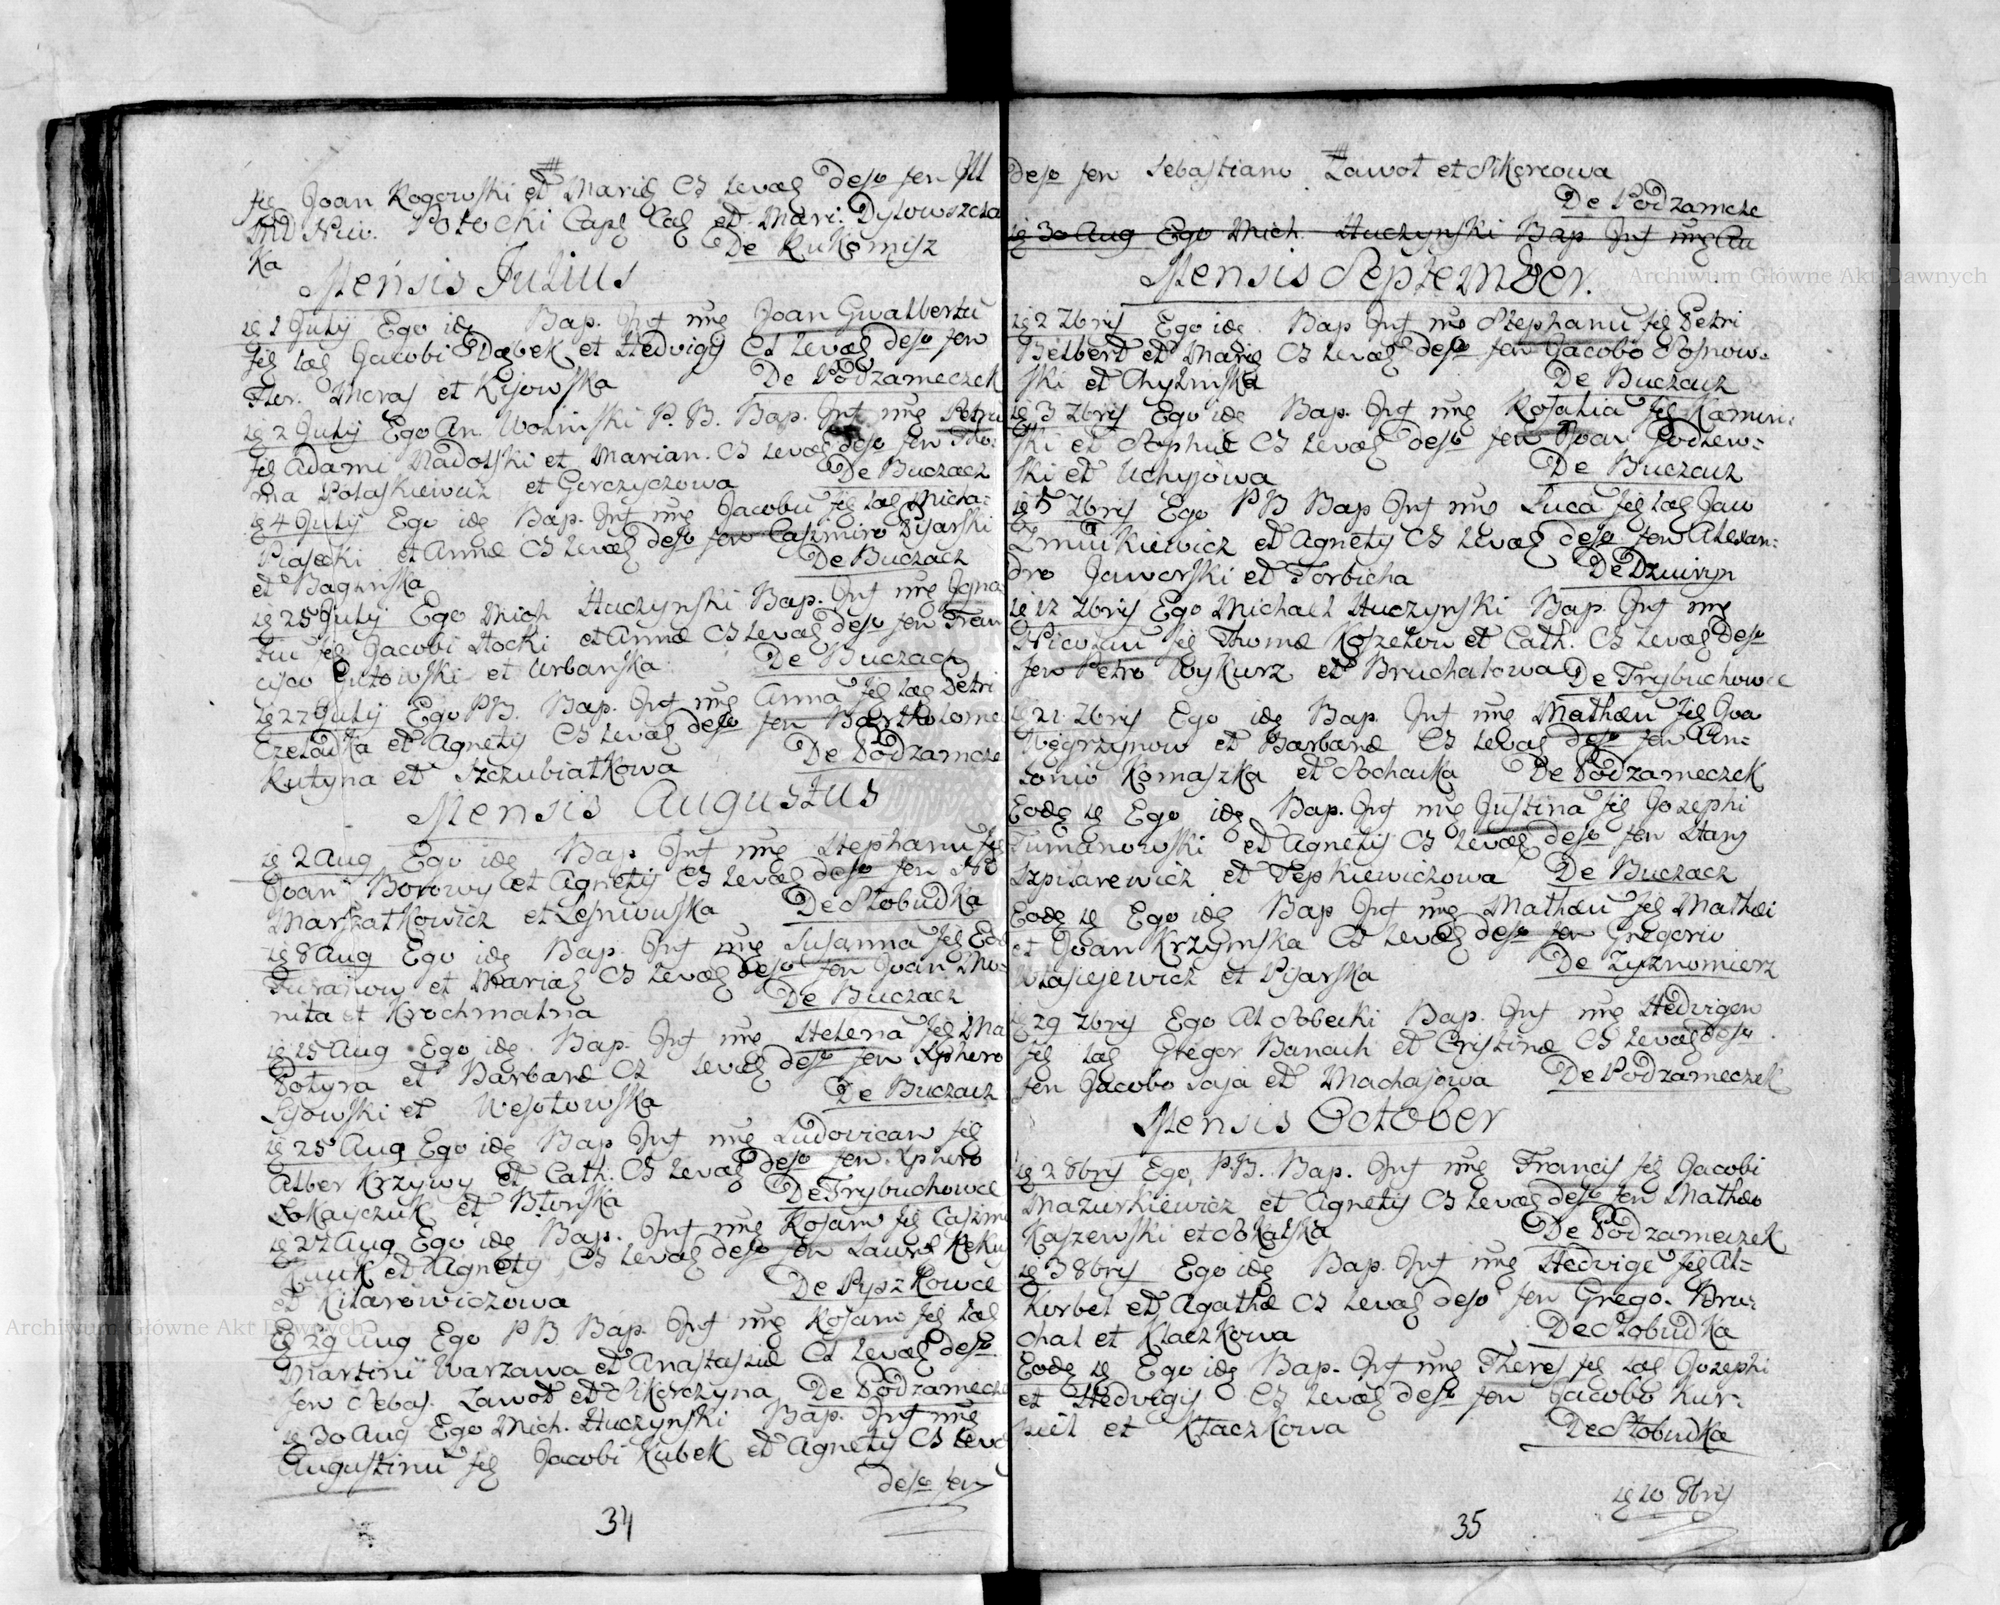 Joan Rogowski et Mariæ CL Levæ deso fen Ill
MD Niw. Potocki Cap Cas et Mari. Dylowszcza
Ka De Rukomisz
Mensis Julius
1 July Ego idę Bap. Inf nne Joan Gwalbertu
fil Leg Jacobi Dąbek et Hedvigis CL Levæ deso fen
Flor. Moras et Kijowska De Podzameczek
2 July Ego An. Wolinski P. B. Bap. Inf nne Petru
fil Adami Nadolski et Marian. CL Levæ deso fen Tho-
ma Potaskiewicz et Gerczyczowa De Buczacz
4 July Ego idę Bap. Inf nne Jacobu fil Leg Micha-
Piasecki et Annæ CL Levæ deso fen Casimiro Pisarski
et Baginska De Buczacz
25 July Ego Mich Huczynski Bap. Inf nne Igna
tiu fil Jacobi Stocki et Annæ CL Levæ deso fen Fran
cisco Gutowski et Urbanska De Buczacz
27 July Ego PB. Bap. Inf nne Anna fil Leg Petri
Czeladka et Agnetis CL Levæ deso fen Bartholome
Kutyna et Szczubiatkowa De Podzamcze
Mensis Augustus
2 Aug Ego idę Bap Inf nne Stephanu fil
Joan Borowy et Agnetis CL Levæ deso fen
Marszatkowicz et Lesniwska De Slobudka
8 Aug Ego idę Bap. Inf nne Susanna fil
et Mariæ CL Levæ deso fen Joan Mo-
nita et Krochmalna De Buczacz
25 Aug Ego idę Bap. Inf nne Helena fil Ma
Potyra et Barbaræ CL Levæ deso fen Xphero
Lisowski et Wesolowska De Buczacz
25 Aug Ego idę Bap Inf nne Ludovicam fil
Alber Krzywy et Cath. CL Levæ deso fen Xphero
Lokayczuk et Blonska De Trybuchowce
27 Aug Ego idę Bap. Inf nne Rosam fil Casimi
et Agnetis CL Levæ deso fen Laure
et Kilarowiczowa De Pyszkowce
29 Aug Ego PB Bap. Inf nne Rosam fil Leg
Martini Warzawa et Anastasiæ CL Levæ deso
fen Sebas. Zawol et Sikorczyna De Podzamcze
30 Aug Ego Mich. Huczynski Bap. Inf nne
Augustinu fil Jacobi Kubek et Agnetis CL Levæ
deso fen
34
deso fen Sebastiano Zawol et Sikorcowa
De Podzamcze
30 Aug Ego Mich. Huczynski Bap Inf nne Au
Mensis September.
2 7bris Ego idę Bap Inf nne Stephanu fil Petri
Belbert et Mariæ CL Levæ deso fen Jacobo Sosnow-
ski et Chylinska De Buczacz
3 7bris Ego idę Bap. Inf nne Rosalia fil Kamin-
ski et Sophiæ CL Levæ deso fen Joan Godzew-
ski et Uchyjowa De Buczacz
5 7bris Ego PB Bap Inf nne Luca fil Leg Jaw
Zminkiewicz et Agnetis CL Levæ deso fen Alexan-
dro Jaworski et Torbicha De Dzwiryn
12 7bris Ego Michael Huczynski Bap. Inf nne
Nicolau fil Thomæ Koszelow et Cath. CL Levæ deso
fen Petro Wykurz et Bruchalowa De Trybuchowce
21 7bris Ego idę Bap. Inf nne Mathæu fil Joa
Węgrzynow et Barbaræ CL Levæ deso fen An-
tonio Komaszka et Sochacka De Podzameczek
Eodę Ego idę Bap. Inf nne Justina fil Josephi
Tumanowski et Agnetis CL Levæ deso fen Stany
Szpilarewicz et Tepkiewiczowa De Buczacz
Eodę Ego idę Bap Inf nne Mathæu fil Mathæi
et Joan Krzymska CL Levæ deso fen Gregorio
Wlasiejewicz et Pisarska De Zyznomierz
29 7bris Ego Al Sobecki Bap. Inf nne Hedvigen
fil Leg Gregor Banach et Cristinæ CL Levæ deso
fen Jacobo Saja et Machajowa De Podzameczek
Mensis October
2 8bris Ego PB. Bap. Inf nne Francis fil Jacobi
Mazurkiewicz et Agnetis CL Levæ deso fen Mathæo
Kaszewski et Skalska De Podzameczek
3 8bris Ego idę Bap. Inf nne Hedvige fil Al-
Korbel et Agathæ CL Levæ deso fen Grego. Bru-
chal et Klaczkowa De Slobudka
Eodę Ego idę Bap. Inf nne Theres fil Leg Josephi
et Hedvigis CL Levæ deso fen Jacobo Kur-
et Klaczkowa De Slobudka
10 8bris
35
Archiwum Główne Akt Dawnych
Archiwum Główne Akt Dawnych